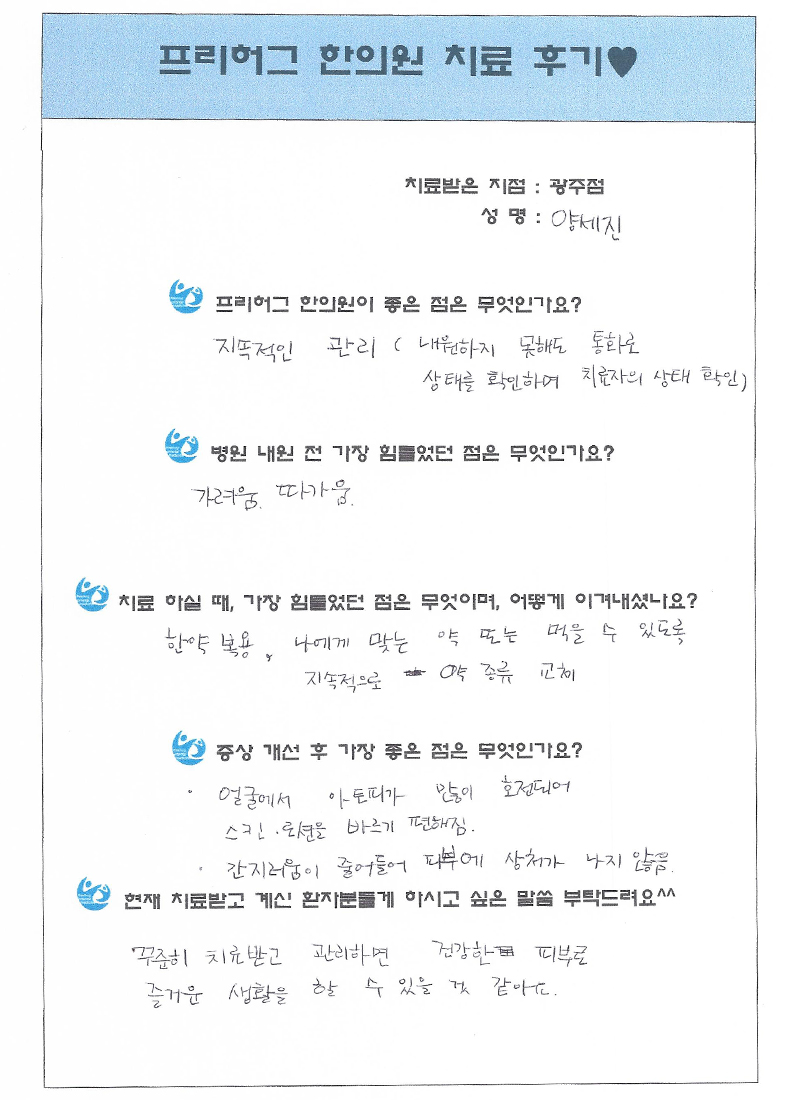 프리허그 한의원 치료 후기♥
치료받은 지점 : 광주점
성 명 : 양세진
프리허그 한의원이 좋은 점은 무엇인가요?
지속적인 관리 ( 내원하지 못해도 통화로
상태를 확인하며 치료자의 상태 확인)
병원 내원 전 가장 힘들었던 점은 무엇인가요?
가려움. 따가움.
치료 하실 때, 가장 힘들었던 점은 무엇이며, 어떻게 이겨내셨나요?
한약 복용, 나에게 맞는 약 또는 먹을 수 있도록
지속적으로 약 종류 교체
증상 개선 후 가장 좋은 점은 무엇인가요?
· 얼굴에서 아토피가 많이 호전되어
스킨·로션을 바르기 편해짐.
· 간지러움이 줄어들어 피부에 상처가 나지 않음.
현재 치료받고 계신 환자분들게 하시고 싶은 말씀 부탁드려요^^
꾸준히 치료받고 관리하면 건강한 피부로
즐거운 생활을 할 수 있을 것 같아요.